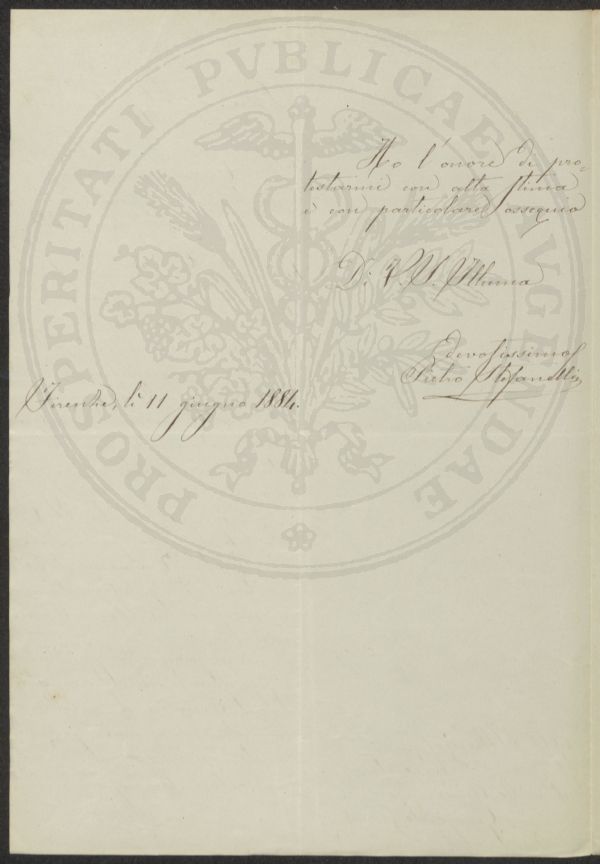 PROSPERITATI PVBLICAE AVGENDAE
Ho l'onore di pro-
testarmi con alta stima
e con particolare ossequio
Di V. S. Illma
devotissimo
Pietro Stefanelli
Firenze, li 11 giugno 1884.